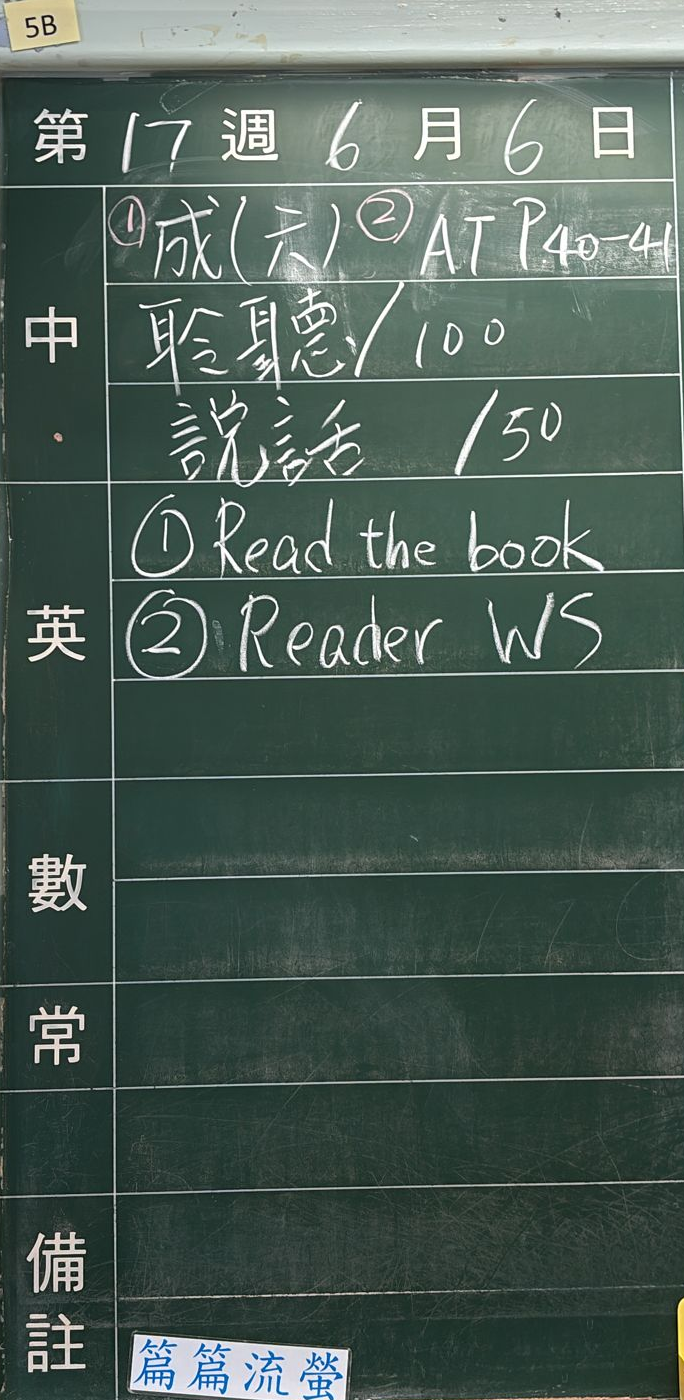 5B
第 17 週 6 月 6 日
中
①成(六) ② AT P.40-41
聆聽/100
説話 /50
英
① Read the book
② Reader WS
數
常
備註
篇篇流螢